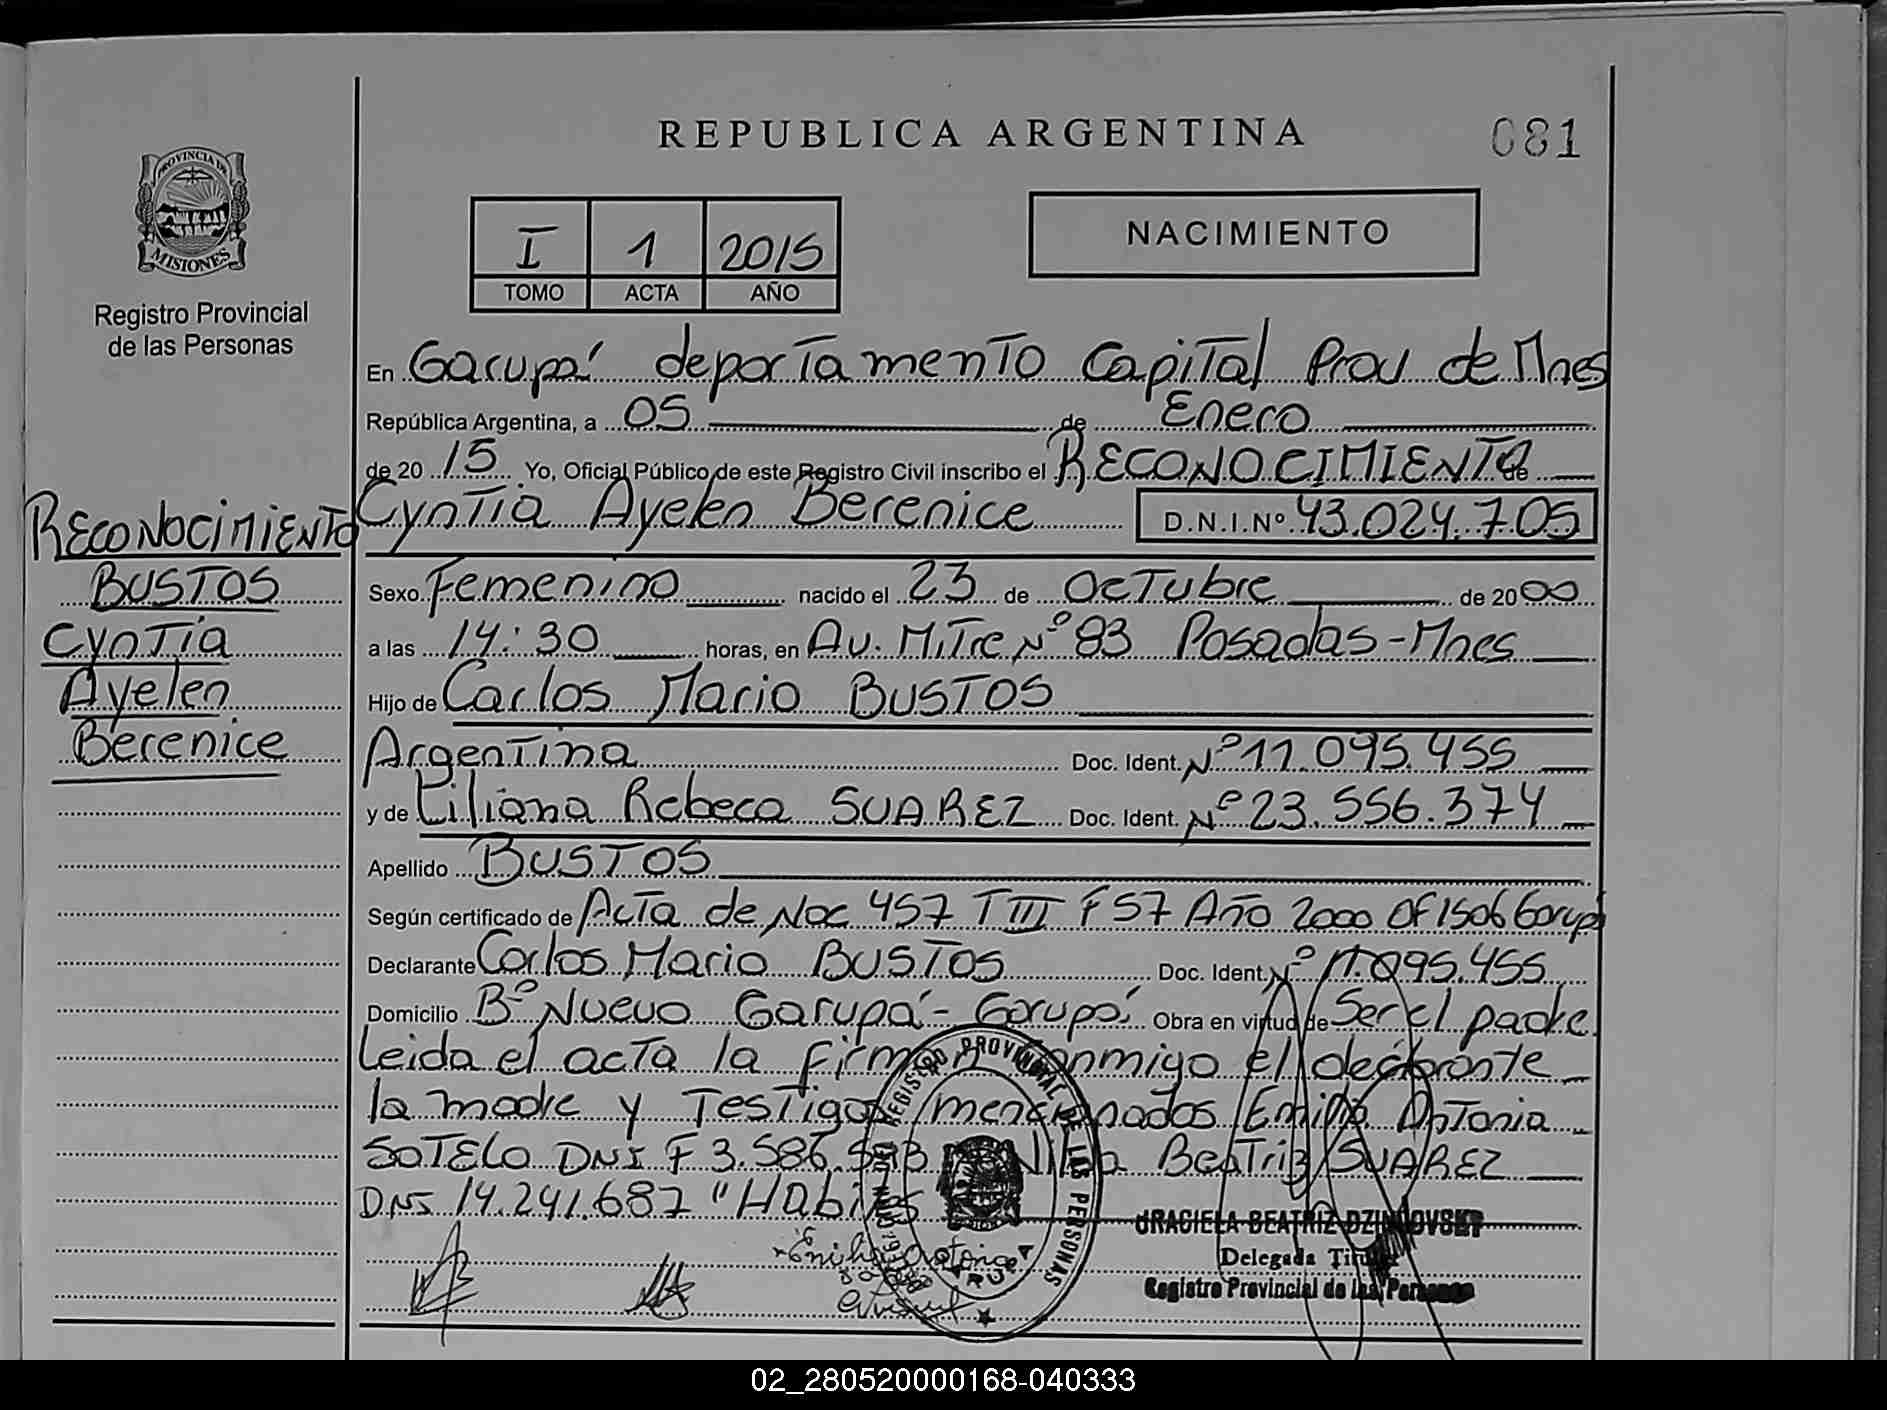 REPUBLICA ARGENTINA
081
PROVINCIA DE
MISIONES
Registro Provincial
de las Personas
I 1 2015
TOMO ACTA AÑO
NACIMIENTO
En Garupá departamento Capital Prov de Mnes
República Argentina, a 05 de Enero
de 20 15 Yo, Oficial Público de este Registro Civil inscribo el RECONOCIMIENTO de
Cyntia Ayelen Berenice D.N.I.Nº 43.024.705
Sexo Femenino nacido el 23 de Octubre de 2000
a las 14:30 horas, en Av. Mitre Nº 83 Posadas-Mnes
Hijo de Carlos Mario BUSTOS
Argentina Doc. Ident. Nº 11.095.455
y de Liliana Rebeca SUAREZ Doc. Ident. Nº 23.556.374
Apellido BUSTOS
Según certificado de Acta de Nac 457 T III F 57 Año 2000 OF 1506 Garupá
Declarante Carlos Mario BUSTOS Doc. Ident. Nº 11.095.455
Domicilio Bº Nuevo Garupá - Garupá Obra en virtud de Ser el padre
Leida el acta la firman conmigo el declarante
la madre y Testigos mencionados Emilia Antonia
SOTELO DNI F 3.586. Beatriz SUAREZ
DNI 14.241.687 "Habiles
RECONOCIMIENTO
BUSTOS
Cyntia
Ayelen
Berenice
REGISTRO PROVINCIAL DE LAS PERSONAS
GARUPA
Emilia Antonia
GRACIELA BEATRIZ
Delegada Titular
Registro Provincial de las Personas
02_280520000168-040333